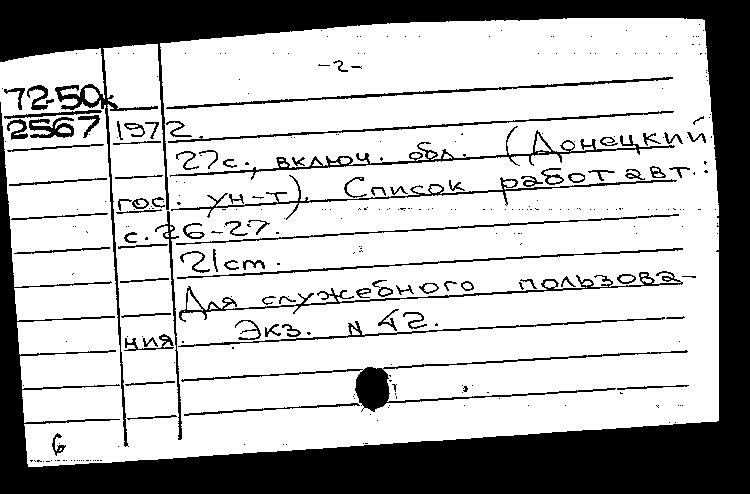 -2-
72-50к
2567 1972.
27с., включ. обл. (Донецкий
гос. ун-т). Список работ авт.:
с. 26-27.
21cm.
Для служебного пользова-
ния. Экз. N 42.
6